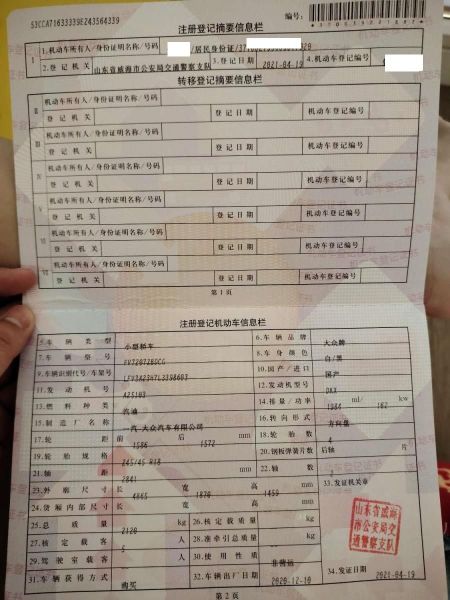 53CCA71633339E243564339
注册登记摘要信息栏
编号:
I 1.机动车所有人/身份证明名称/号码 /居民身份证/
2.登记机关 山东省威海市公安局交通警察支队 3.登记日期 2021-04-19 4.机动车登记编号
转移登记摘要信息栏
II 机动车所有人/身份证明名称/号码
登记机关 登记日期 机动车登记编号
III 机动车所有人/身份证明名称/号码
登记机关 登记日期 机动车登记编号
IV 机动车所有人/身份证明名称/号码
登记机关 登记日期 机动车登记编号
V 机动车所有人/身份证明名称/号码
登记机关 登记日期 机动车登记编号
VI 机动车所有人/身份证明名称/号码
登记机关 登记日期 机动车登记编号
VII 机动车所有人/身份证明名称/号码
登记机关 登记日期 机动车登记编号
第1页
注册登记机动车信息栏
5.车辆类型 小型轿车 6.车辆品牌 大众牌
7.车辆型号 8.车身颜色 白/黑
9.车辆识别代号/车架号 10.国产/进口 国产
11.发动机号 12.发动机型号 DKX
13.燃料种类 汽油 14.排量/功率 1984 ml/ 162 kw
15.制造厂名称 一汽-大众汽车有限公司 16.转向形式 方向盘
17.轮距 前 1596 后 1572 mm 18.轮胎数 4
19.轮胎规格 245/45 R18 20.钢板弹簧片数 后轴 片
21.轴距 2841 mm 22.轴数
23.外廓尺寸 长 4865 宽 1870 高 1459 mm 33.发证机关章
24.货厢内部尺寸 长 宽 高 mm
25.总质量 2120 kg 26.核定载质量 kg
27.核定载客 5 人 28.准牵引总质量 kg
29.驾驶室载客 人 30.使用性质 非营运
31.车辆获得方式 购买 32.车辆出厂日期 2020-12-10 34.发证日期 2021-04-19
山东省威海
市公安局交
通警察支队
第2页